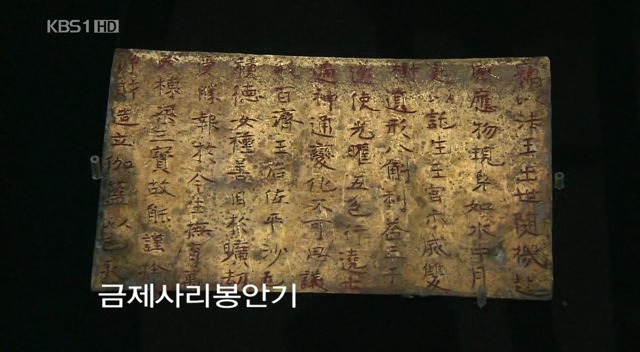 KBS1 HD
竊以法王出世隨機赴
感應物現身如水中月
是以託生王宮示滅雙
樹遺形八斛利益三千
遂使光曜五色行遶七
遍神通變化不可思議
我百濟王后佐平沙乇
積德女種善因於曠劫
受勝報於今生撫育萬
民棟梁三寶故能謹捨
淨財造立伽藍以己亥
금제사리봉안기